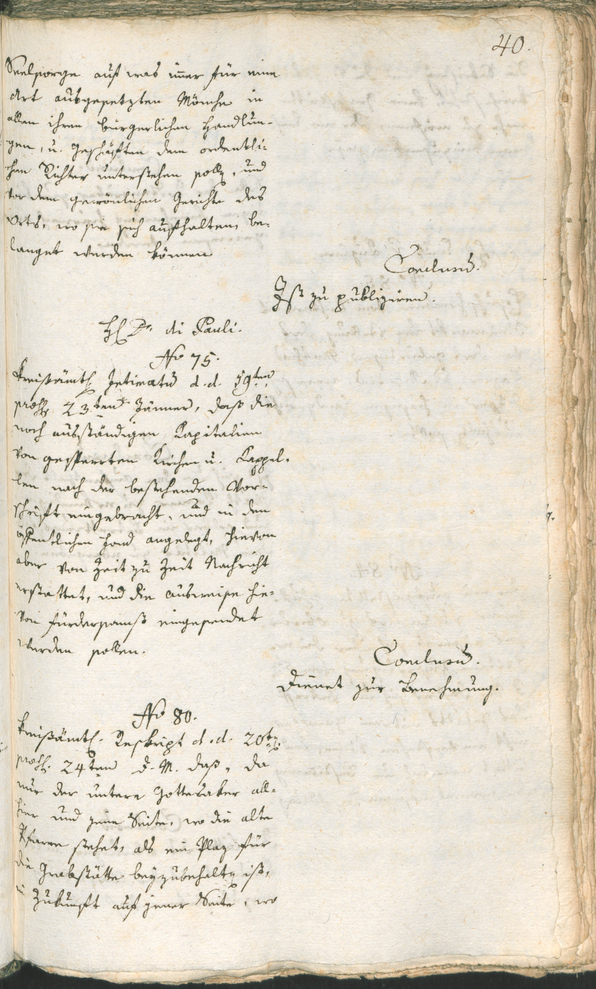 40.
Seelsorge auf was im̄er für eine
Art ausgesetzten Mönche in
allen ihren bürgerlichen Handlun-
gen, u. Geschäften dem ordentli-
chen Richter unterstehen soll, und
vor dem gewönlichen Gerichte des
Orts, wo sie sich aufhalten, be-
langet werden können
Conclusū.
Ist zu publiziren.
H. Dr. di Pauli.
No 75.
Kreisämtl. Intimatū d.d. 19ten,
prœs. 23ten Jänner, daß die
noch ausständigen Kapitalien
von gesperrten Kirchen u. Kappel-
len nach der bestehenden Vor-
schrift eingebracht, und in den
öffentlichen Fond angelegt, hievon
aber von Zeit zu Zeit Nachricht
erstattet, und die Ausweise hie-
von fürdersamst eingesendet
werden sollen.
Conclusū.
Dienet zur Benehmung.
No 80.
Kreisämtl. Reskript d.d. 20t,
prœs. 24ten d. M. daß, da
nur der untere Gottesaker all-
hier und jene Seite, wo die alte
Pfarre stehet, als ein Plaz für
die Grabstätte beyzubehalten ist,
in Zukunft auf jener Seite, wo